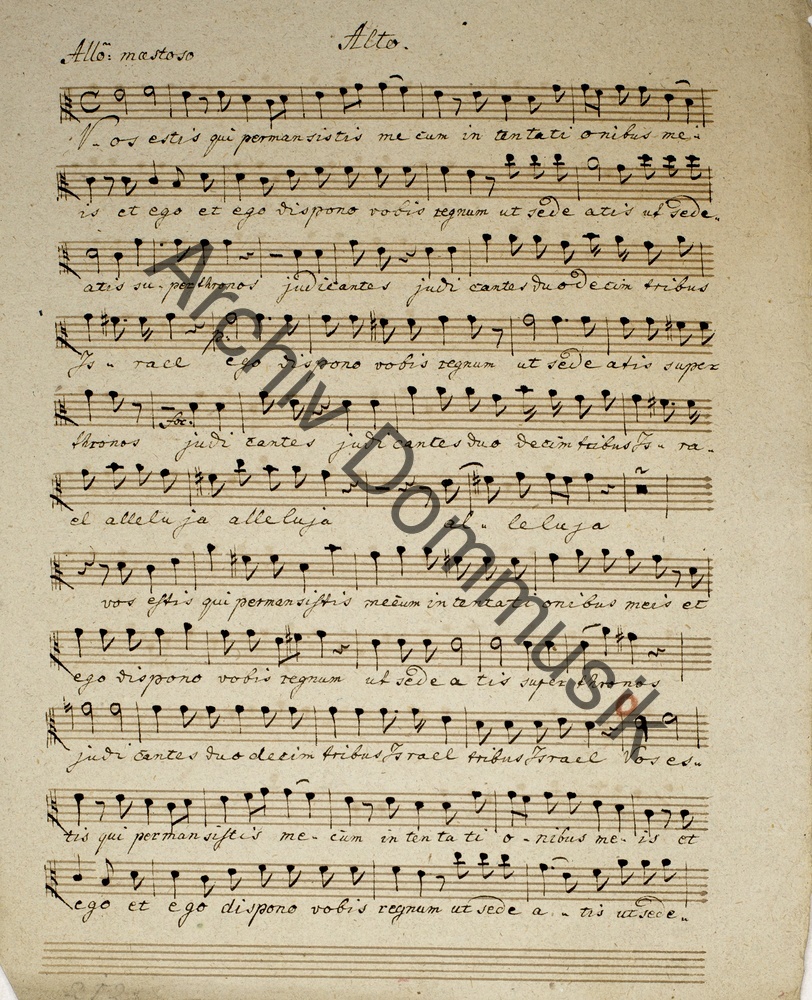 Alto.
Allõ: mæstoso
V- os estis qui permansistis me cum in tentati onibus me-
is et ego et ego dispono vobis regnum ut sede atis ut sede-
atis su- per thronos judicantes judi cantes duodecim tribus
Is- rael ego dispono vobis regnum ut sede atis super
for:
thronos judi cantes judi cantes duo decim tribus Is- ra-
el allelu ja alleluja al- leluja
vos estis qui permansistis mecum in tentati onibus meis et
ego dispono vobis regnum ut sede a tis super thronos
judi cantes duo decim tribus Israel tribus Israel Vos es-
tis qui permansistis me- cum in tenta ti o- nibus me- is et
ego et ego dispono vobis regnum ut sede a- tis ut sede-
Archiv Dommusik